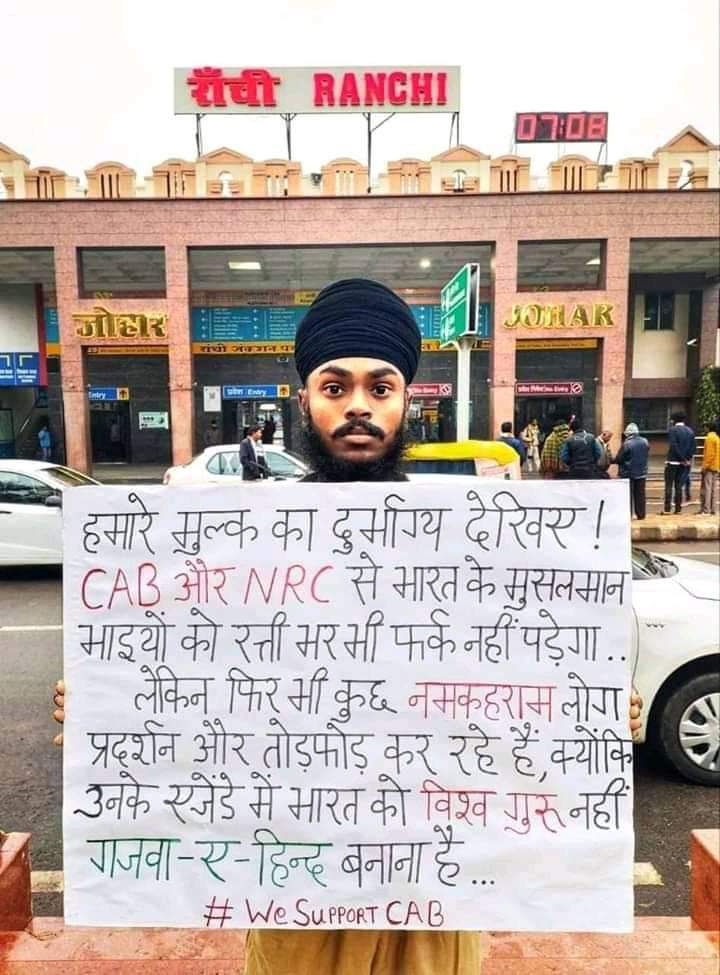 राँची RANCHI
07:08
जोहार JOHAR
प्रवेश Entry
हमारे मुल्क का दुर्भाग्य देखिए !
CAB और NRC से भारत के मुसलमान
भाइयों को रत्ती भर भी फर्क नहीं पड़ेगा ..
लेकिन फिर भी कुछ नमकहराम लोग
प्रदर्शन और तोड़फोड़ कर रहे हैं, क्योंकि
उनके एजेंडे में भारत को विश्व गुरू नहीं
गजवा-ए-हिन्द बनाना है ...
# We SUPPORT CAB